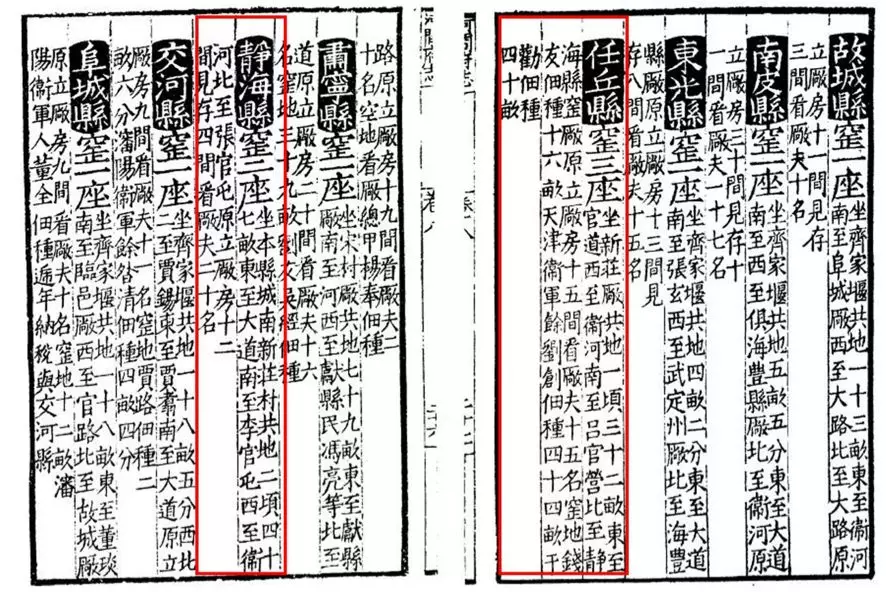 故城縣窐一座
坐齊家堰共地一十三畝東至衞河
南至阜城厰西至大路北至大路原
立厰房十一間見存
三間看厰夫十名
南皮縣窐一座
坐齊家堰共地五畝五分東至大道
南至西至俱海豊縣厰北至衞河原
立厰房三十間見存十
一間看厰夫一十七名
東光縣窐一座
坐齊家堰共地四畝二分東至大道
南至張玄西至武定州厰北至海豊
縣厰原立厰房十三間見
存八間看厰夫十五名
任丘縣窐三座
坐新莊厰共地一頃三十二畝東至
官道西至衞河南至呂官營北至静
海縣窐厰原立厰房十五間看厰夫十五名窐地錢
友佃種十六畝天津衞軍餘劉創佃種四十四畝于
勸佃種
四十畝
路原立厰房十九間看厰夫二
十名空地看厰總甲楊奉佃種
肅寧縣窐一座
坐宋村厰共地七十九畝東至獻縣
厰南至河西至獻縣民馮亮等北至
道原立厰房二十間看厰夫十六
名窐地三十九畝劉友吳經佃種
靜海縣窐二座
坐本縣城南新莊村共地二頃四十
七畝東至大道南至李官屯西至衞
河北至張官屯原立厰房十二
間見存四間看厰夫二十名
交河縣窐一座
坐齊家堰共地一十八畝五分西北
二至賈錫東至賈肅南至大道原立
厰房九間看厰夫十一名窐地賈路佃種二
畝六分瀋陽衞軍餘昝清佃種四畝四分
阜城縣窐一座
坐齊家堰共地一十八畝東至董琰
南至臨邑厰西至官路北至故城厰
原立厰房九間看厰夫十名窐地十二畝瀋
陽衞軍人董全佃種逓年納稅與交河縣